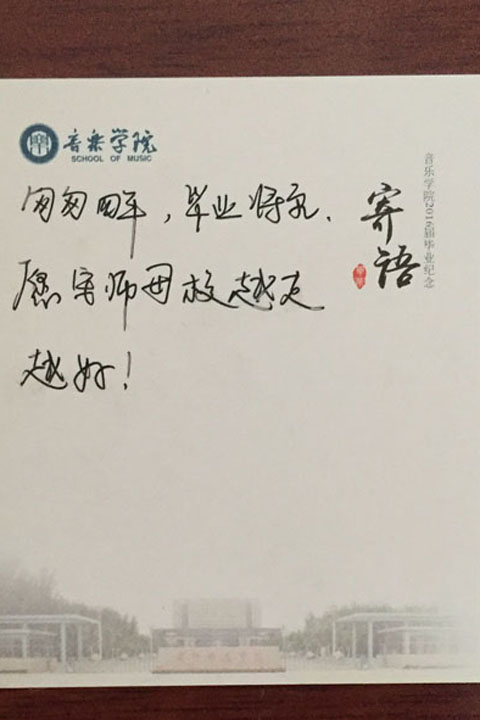 音乐学院
SCHOOL OF MUSIC
匆匆四年，毕业将至.
愿安师母校越走
越好！
寄语
音乐学院2016届毕业纪念